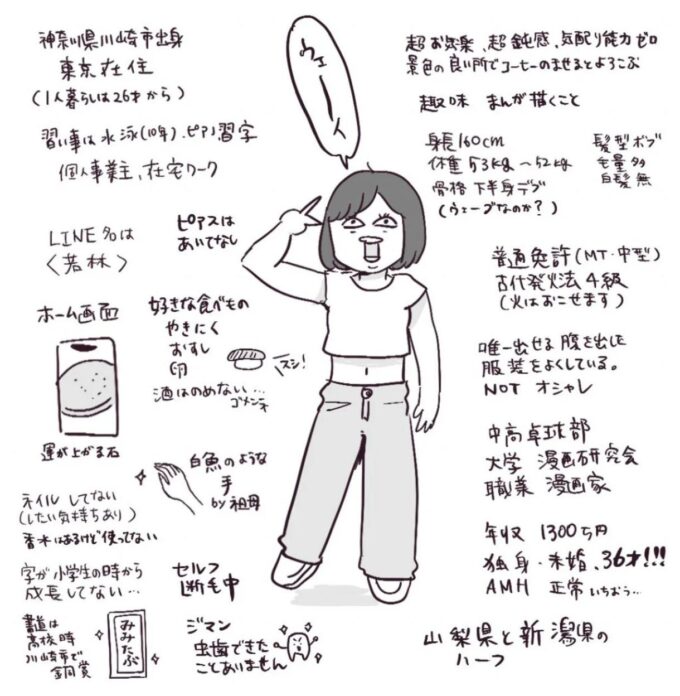 神奈川県川崎市出身
東京在住
(1人暮らしは26才から)
習い事は水泳(10年)、ピアノ、習字
個人事業主、在宅ワーク
LINE名は
〈若林〉
ピアスは
あいてなし
ホーム画面
運が上がる石
好きな食べもの
やきにく
おすし
卵
スシ!
酒はのめない…
ゴメンネ
白魚のような
手
by 祖母
ネイル してない
(したい気持ちあり)
香水はあるけど使ってない
字が小学生の時から
成長してない…
セルフ
断毛中
書道は
高校時
川崎市で
銅賞
みみたぶ
ジマン
虫歯できた
ことありません
ウェーイ
超お気楽、超鈍感、気配り能力ゼロ
景色の良い所でコーヒーのませるとよろこぶ
趣味 まんが描くこと
身長160cm
体重53kg〜52kg
骨格 下半身デブ
(ウェーブなのか?)
髪型 ボブ
毛量 多
白髪 無
普通免許(MT・中型)
古代発火法4級
(火はおこせます)
唯一出せる腹を出した
服装をよくしている。
NOT オシャレ
中高 卓球部
大学 漫画研究会
職業 漫画家
年収 1300万円
独身・未婚、36才!!!
AMH 正常 いちおう…
山梨県と新潟県の
ハーフ